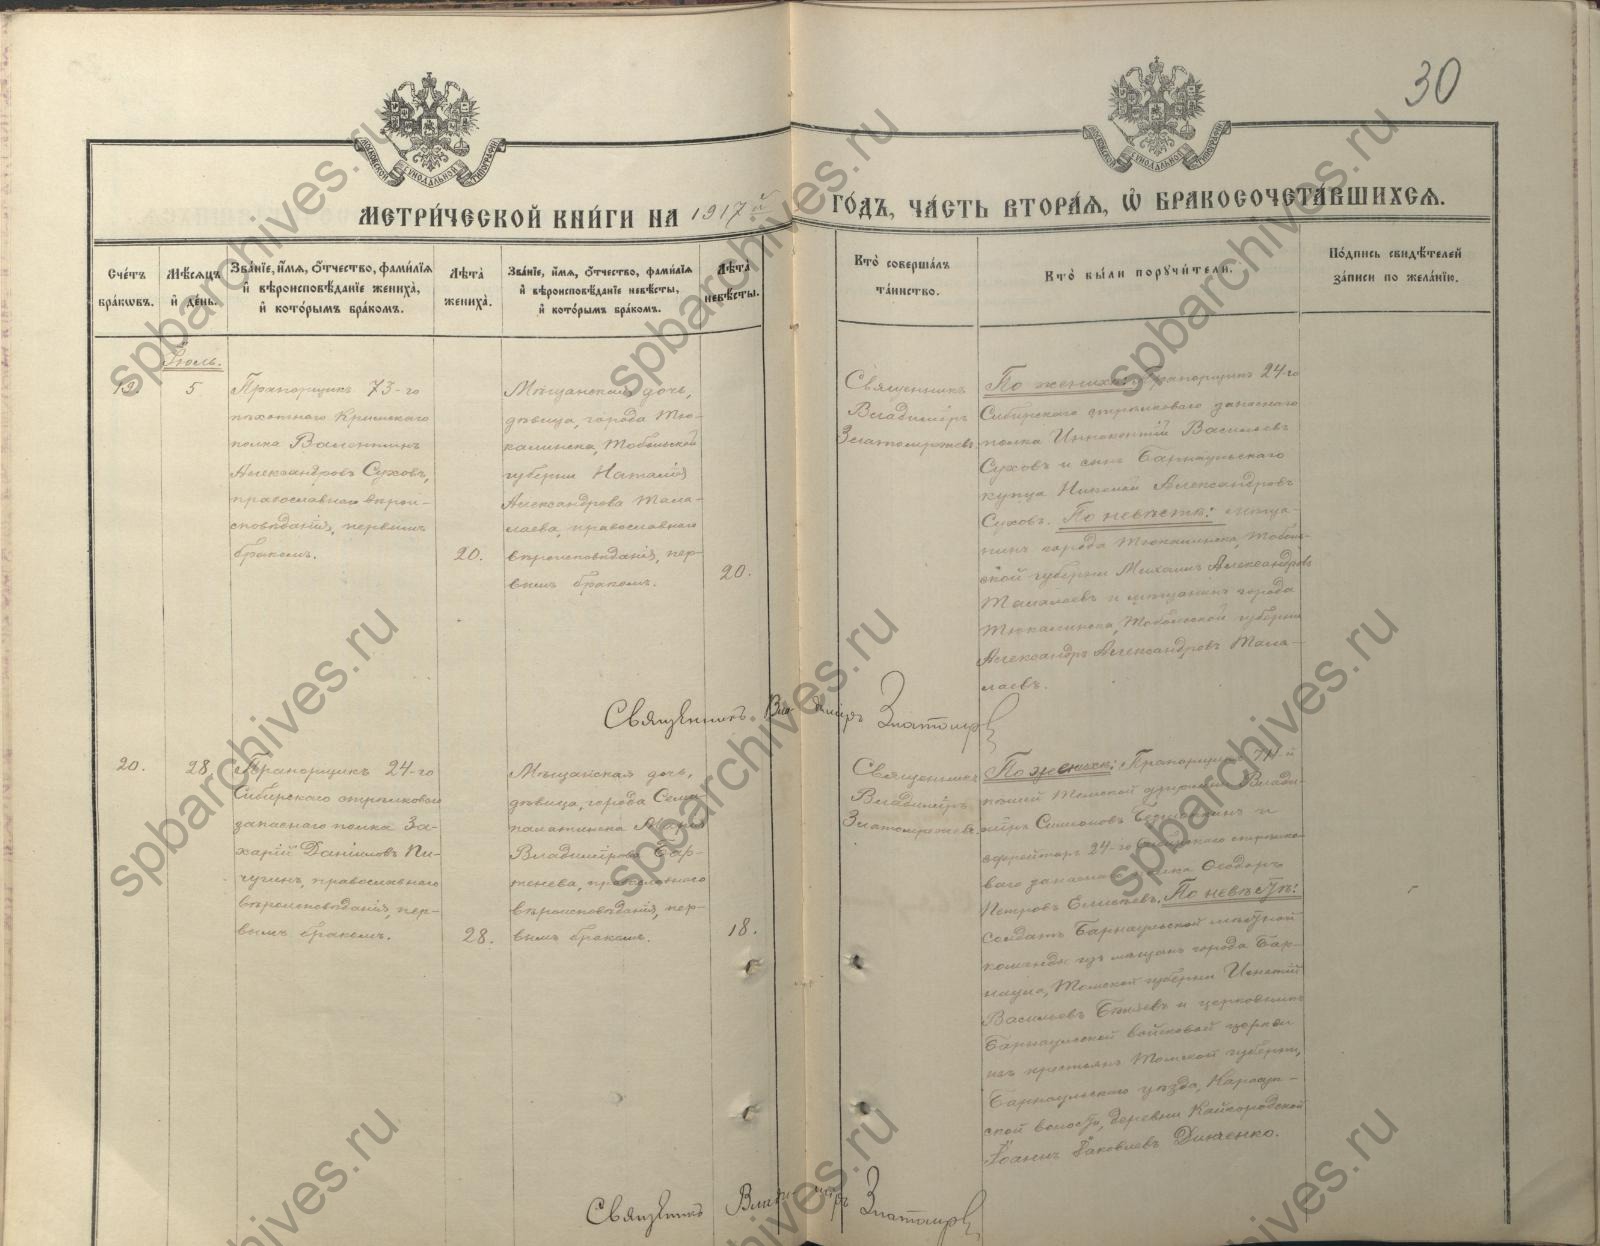 30
МОСКОВСКОЙ СѴНОДАЛЬНОЙ ТИПОГРАФІИ
МОСКОВСКОЙ СѴНОДАЛЬНОЙ ТИПОГРАФІИ
МЕТРИ́ЧЕСКОЙ КНИ́ГИ НА 1917й ГО́ДЪ, ЧА́СТЬ ВТОРА́Ѧ, Ѡ҆ БРАКОСОЧЕТА́ВШИХСѦ.
Сче́тъ
бра́ковъ.
Мѣ́сѧцъ
и҆ де́нь.
Зва́нїе, и҆́мѧ, ѻ҆́тчество, фами́лїѧ
и҆ вѣроисповѣ́данїе жениха̀,
и҆ кото́рымъ бра́комъ.
Лѣ́та̀
жениха̀.
Зва́нїе, и҆́мѧ, ѻ҆́тчество, фами́лїѧ
и҆ вѣроисповѣ́данїе невѣ́сты,
и҆ кото́рымъ бра́комъ.
Лѣ́та̀
невѣ́сты.
Кто̀ соверша́лъ
та́инство.
Кто̀ бы́ли порꙋчи́тели.
По́дпись свидѣ́телей
за́писи по жела́нїю.
Іюль.
19.
5
Прапорщикъ 73-го
пѣхотнаго Крымскаго
полка Валентинъ
Александровъ Суховъ,
православнаго вѣрои-
сповѣданія, первымъ
бракомъ.
20.
Мѣщанская дочь,
дѣвица, города Тю-
калинска, Тобольской
губерніи Наталія
Александрова Мала-
лаева, православнаго
вѣроисповѣданія, пер-
вымъ бракомъ.
20.
Священникъ
Владиміръ
Златомрежевъ.
По женихѣ: Прапорщикъ 24-го
Сибирскаго стрѣлковаго запаснаго
полка Иннокентій Васильевъ
Суховъ и сынъ Барнаульскаго
купца Николай Александровъ
Суховъ. По невѣстѣ: мѣща-
нинъ города Тюкалинска, Тоболь-
ской губерніи Михаилъ Александровъ
Малалаевъ и мѣщанинъ города
Тюкалинска, Тобольской губерніи
Александръ Александровъ Мала-
лаевъ.
Священникъ Владиміръ
20.
28.
Прапорщикъ 24-го
Сибирскаго стрѣлковаго
запаснаго полка За-
харій Даніиловъ Пи-
чугинъ, православнаго
вѣроисповѣданія, пер-
вымъ бракомъ.
28.
Мѣщанская дочь,
дѣвица, города Семи-
палатинска Марія
Владимірова Бар-
тенева, православнаго
вѣроисповѣданія, пер-
вымъ бракомъ.
18.
Священникъ
Владиміръ
Златомрежевъ.
По женихѣ: Прапорщикъ
пѣшей Томской дружины Влади-
міръ Симеоновъ и
ефрейторъ 24-го Сибирскаго стрѣлко-
ваго запаснаго полка Ѳеодоръ
Петровъ Елисѣевъ. По невѣстѣ:
солдатъ Барнаульской мѣстной
команды изъ мѣщанъ города Бар-
наула, Томской губерніи Игнатій
Васильевъ Бѣляевъ и церковникъ
Барнаульской войсковой церкви
изъ крестьянъ Томской губерніи,
Барнаульскаго уѣзда, Карасук-
ской волости, деревни Кайгородской
Іоаннъ Іаковлевъ Динченко.
Священникъ Владиміръ
spbarchives.ru
spbarchives.ru
spbarchives.ru
spbarchives.ru
spbarchives.ru
spbarchives.ru
spbarchives.ru
spbarchives.ru
spbarchives.ru